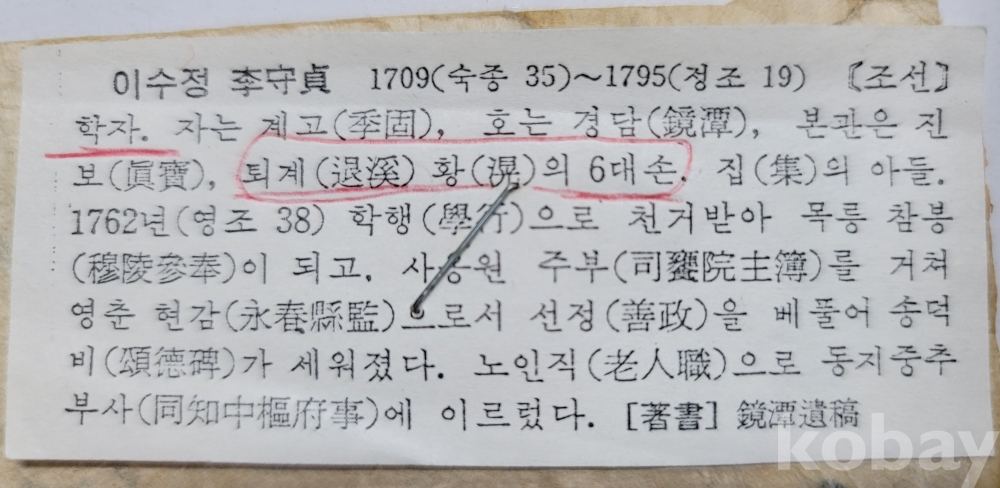 이수정 李守貞 1709(숙종 35)~1795(정조 19) 〔조선〕
학자. 자는 계고(季固), 호는 경담(鏡潭), 본관은 진
보(眞寶), 퇴계(退溪) 황(滉)의 6대손. 집(集)의 아들.
1762년(영조 38) 학행(學行)으로 천거받아 목릉 참봉
(穆陵參奉)이 되고, 사옹원 주부(司饔院主簿)를 거쳐
영춘 현감(永春縣監)으로서 선정(善政)을 베풀어 송덕
비(頌德碑)가 세워졌다. 노인직(老人職)으로 동지중추
부사(同知中樞府事)에 이르렀다. [著書] 鏡潭遺稿
kobay